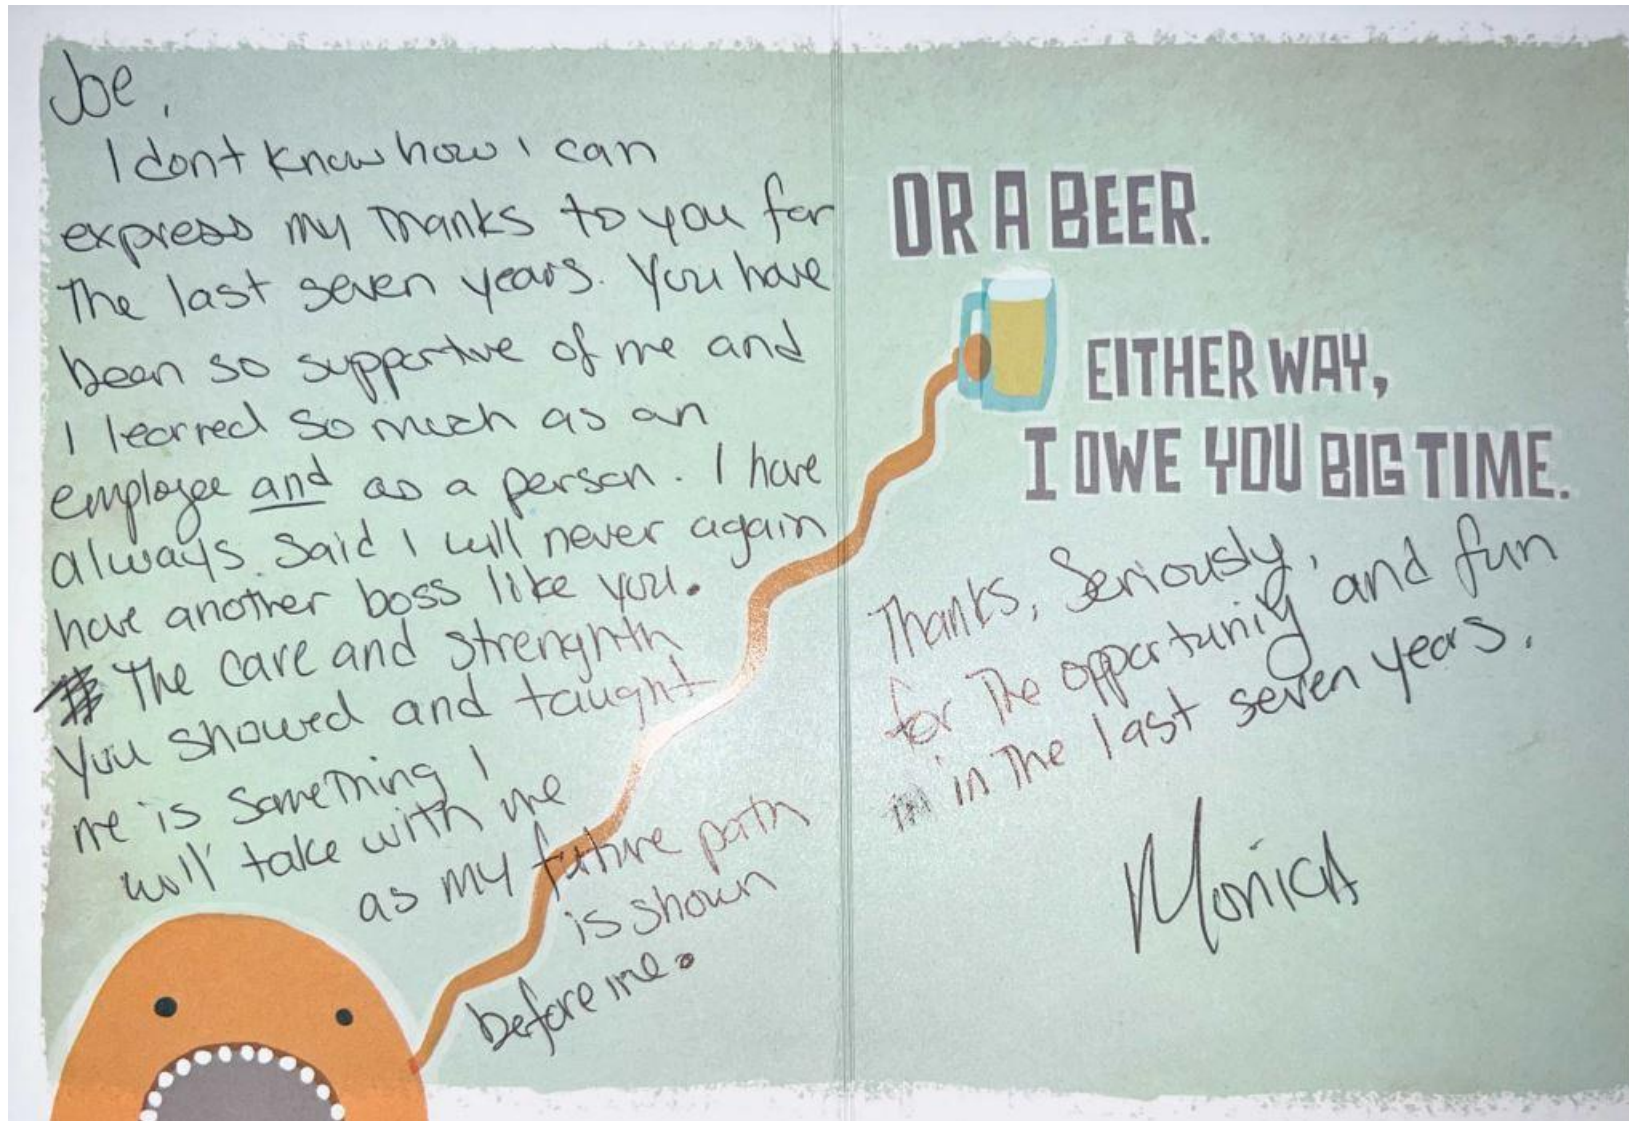 Joe,
I dont know how I can
express my thanks to you for
The last seven years. You have
been so supportive of me and
I learned so much as an
employee and as a person. I have
always said I will never again
have another boss like you.
The care and strenghth
you showed and taught
me is something I
will take with me
as my future path
is shown
before me.
OR A BEER.
EITHER WAY,
I OWE YOU BIG TIME.
Thanks, Seriously,
for The opportuniy, and fun
in The last seven years.
Monica